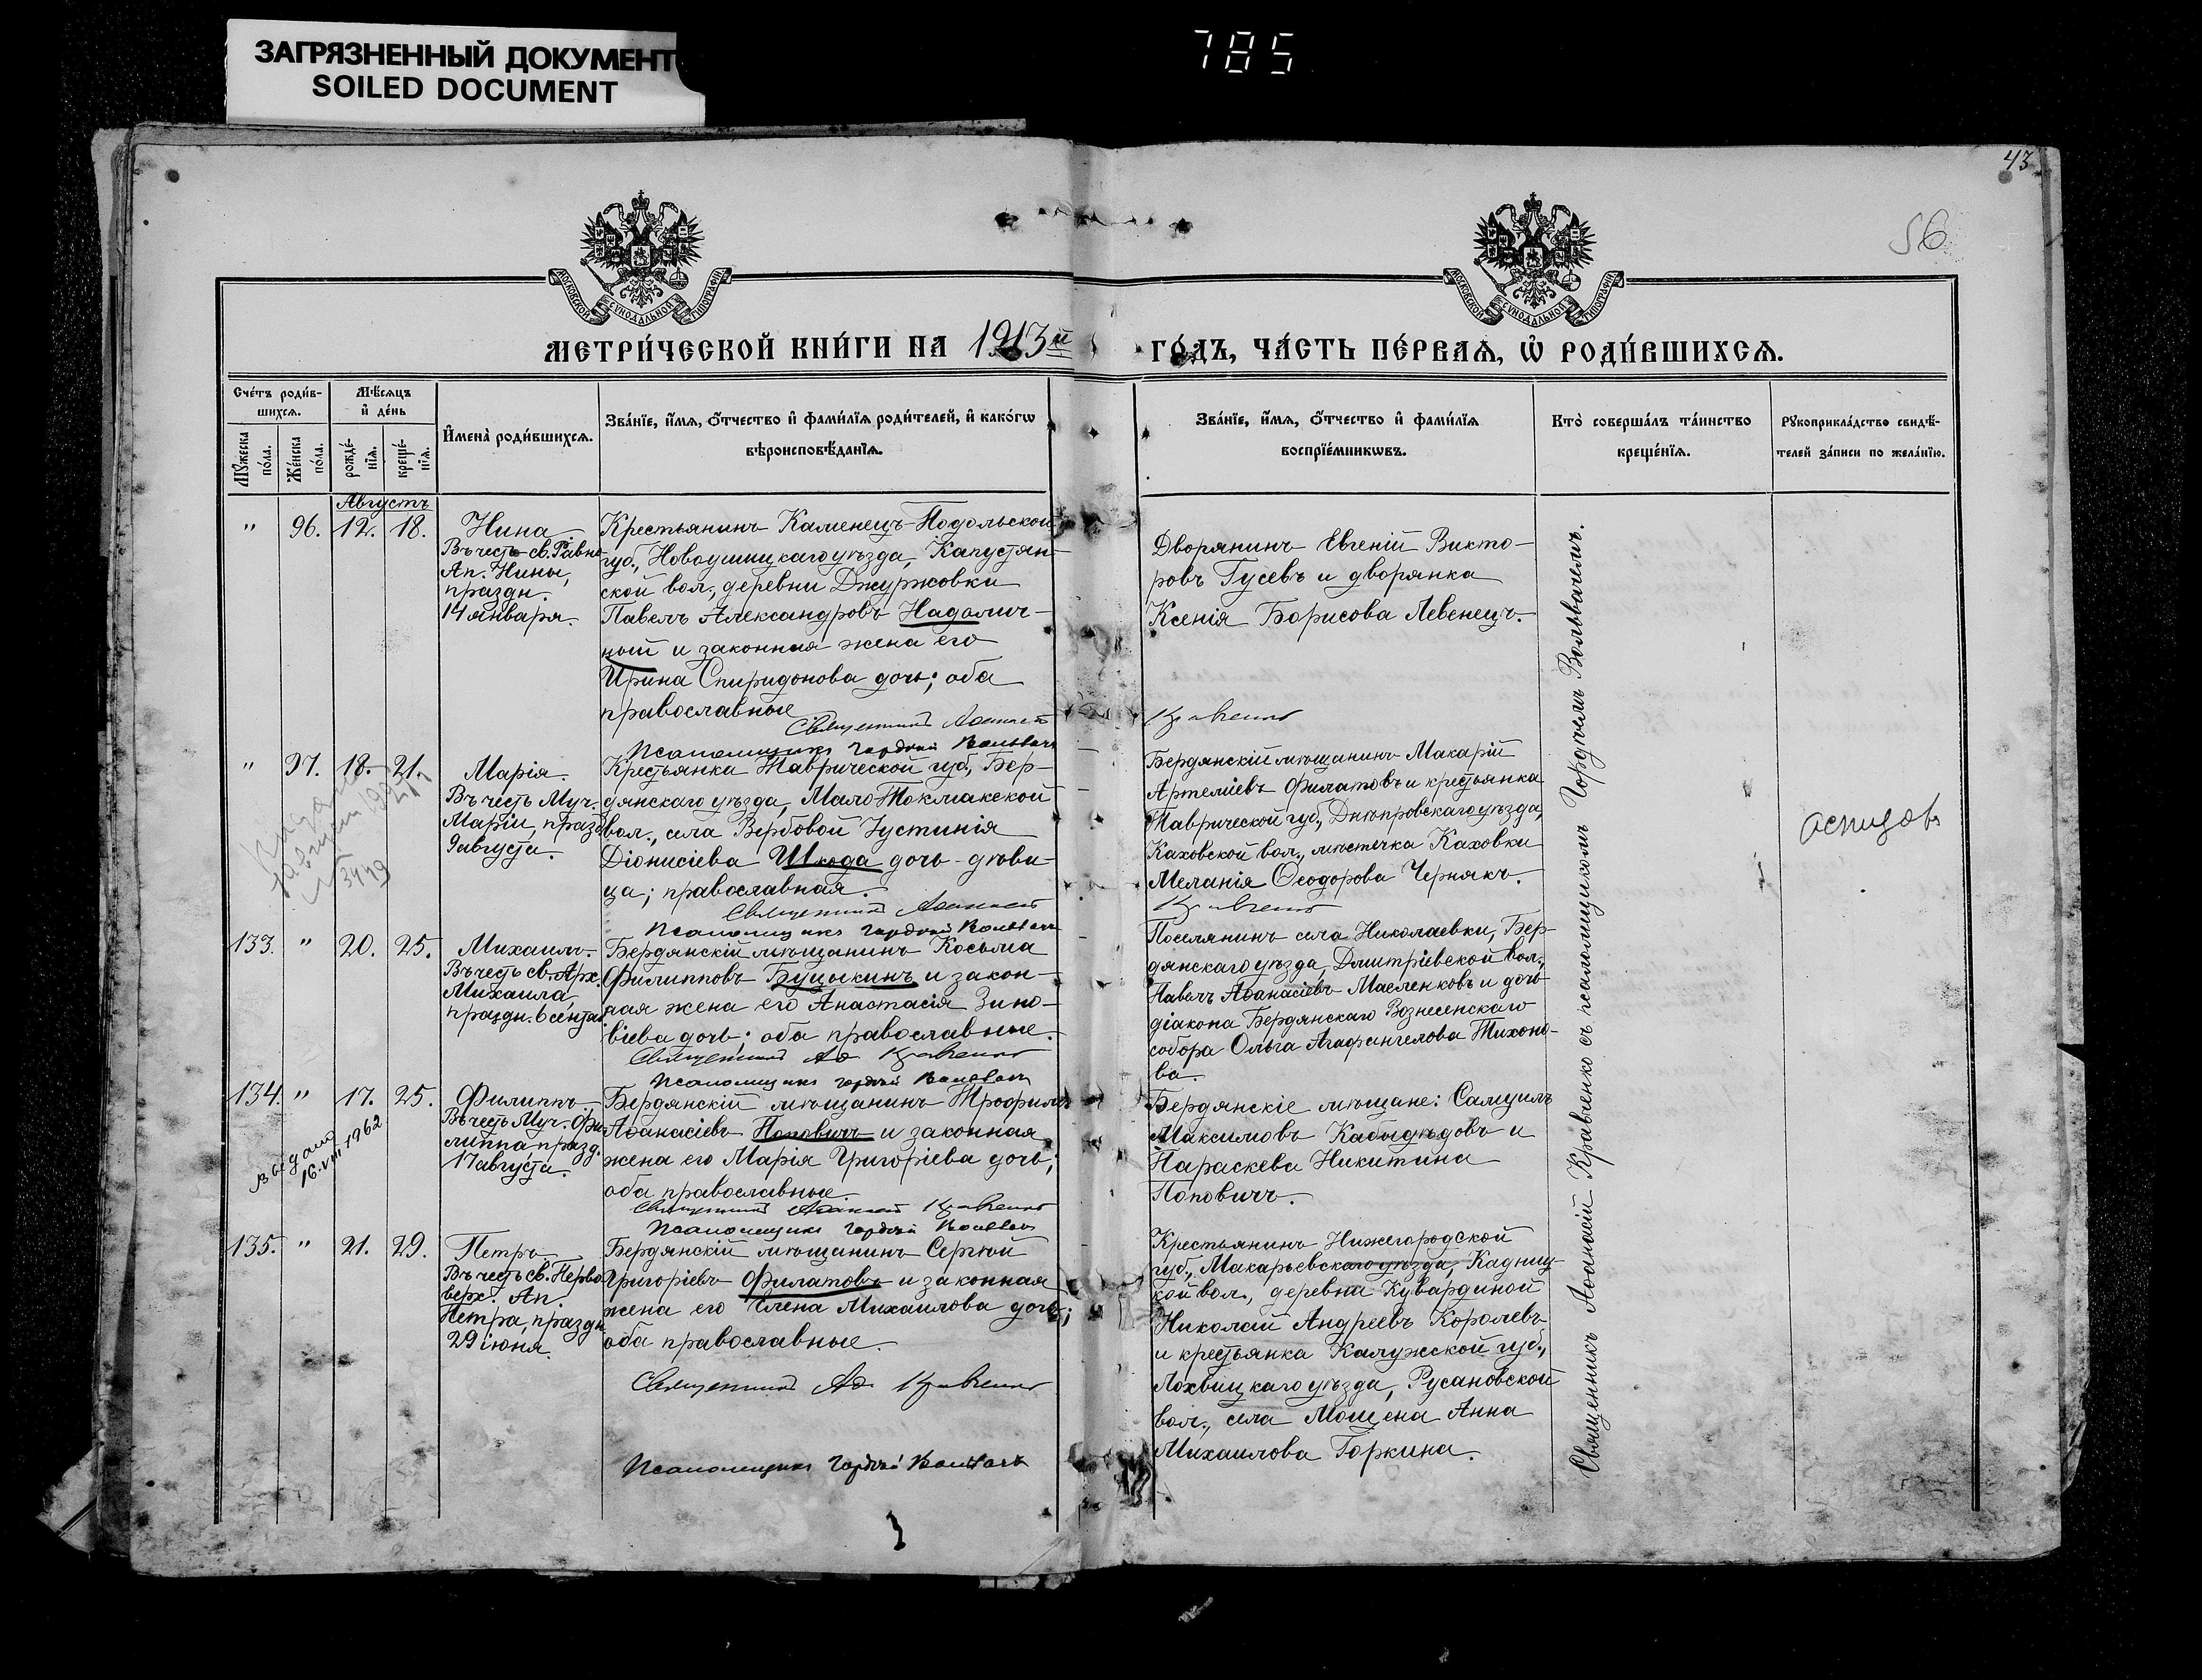 ЗАГРЯЗНЕННЫЙ ДОКУМЕНТ
SOILED DOCUMENT
785
43
56
МОСКОВСКОЙ СѴНОДАЛЬНОЙ ТИПОГРАФІИ
МОСКОВСКОЙ СѴНОДАЛЬНОЙ ТИПОГРАФІИ
МЕТРИ́ЧЕСКОЙ КНИ́ГИ НА 1913й
ГО́ДЪ, ЧА́СТЬ ПЕ́РВАѦ, Ѡ҆ РОДИ́ВШИХСѦ.
Сче́тъ роди́в-
шихсѧ.
Мꙋ́жеска
по́ла.
Же́нска
по́ла.
Мѣ́сѧцъ
и҆ де́нь
рожде́-
нїѧ.
креще́-
нїѧ.
И҆мена̀ роди́вшихсѧ.
Зва́нїе, и҆́мѧ, ѻ҆́тчество и҆ фами́лїѧ роди́телей, и҆ како́гѡ
вѣроисповѣ́данїѧ.
Зва́нїе, и҆́мѧ, ѻ҆́тчество и҆ фами́лїѧ
воспрїе́мникѡвъ.
Кто̀ соверша́лъ та́инство
креще́нїѧ.
Рꙋкоприкла́дство свидѣ́-
телей за́писи по жела́нїю.
Августъ
" 96. 12. 18.
Нина
Въ честь св. Равно
Ап. Нины,
праздн.
14 января.
Крестьянинъ Каменецъ-Подольской
губ., Новоушицкаго уѣзда, Капустян-
ской вол., деревни Джуржовки
Павелъ Александровъ Надолич-
ный и законная жена его
Ирина Спиридонова дочь; оба
православные
Священникъ Аѳанасій Кравченко
Псаломщикъ Гордѣй Вольвачъ
Дворянинъ Евгеній Викто-
ровъ Гусевъ и дворянка
Ксенія Борисова Левенецъ.
" 97. 18. 21.
Марія.
Въ честь Муч.
Маріи, празд.
9 августа.
3449
Крестьянка Таврической губ., Бер-
дянскаго уѣзда, Мало-Токмакской
вол., села Вербовой Іустинія
Діонисіева Шкода дочь-дѣви-
ца; православная.
Священникъ Аѳанасій Кравченко
Псаломщикъ Гордѣй Вольвачъ
Бердянскій мѣщанинъ Макарій
Артеміевъ Филатовъ и крестьянка
Таврической губ., Днѣпровскаго уѣзда,
Каховской вол., мѣстечка Каховки
Меланія Ѳеодорова Чернякъ.
133. " 20. 25.
Михаилъ.
Въ честь св. Арх.
Михаила,
праздн. 6 сентяб.
Бердянскій мѣщанинъ Косьма
Филипповъ Буцыкинъ и закон-
ная жена его Анастасія Зино-
віева дочь; оба православные.
Священникъ Аѳ. Кравченко
Псаломщикъ Гордѣй Вольвачъ
Поселянинъ села Николаевки, Бер-
дянскаго уѣзда, Дмитріевской вол.,
Павелъ Аѳанасіевъ Масленковъ и дочь
діакона Бердянскаго Вознесенскаго
собора Ольга Агафангелова Тихоно-
ва.
134. " 17. 25.
Филиппъ
Въ честь Муч. Фи-
липпа, празд.
17 августа.
выдано
16.VIII 1962
Бердянскій мѣщанинъ Трофимъ
Аѳанасіевъ Поповичъ и законная
жена его Марія Григоріева дочь;
оба православные.
Священникъ Аѳанасій Кравченко
Псаломщикъ Гордѣй Вольвачъ
Бердянскіе мѣщане: Самуилъ
Максимовъ Кабыдѣдовъ и
Параскева Никитина
Поповичъ.
135. " 21. 29.
Петръ
Въ честь св. Перво
верх. Ап.
Петра, праздн
29 іюня.
Бердянскій мѣщанинъ Сергѣй
Григоріевъ Филатовъ и законная
жена его Елена Михаилова дочь;
оба православные.
Священникъ Аѳ. Кравченко
Псаломщикъ Гордѣй Вольвачъ
Крестьянинъ Нижегородской
губ., Макарьевскаго уѣзда, Кадниц-
кой вол., деревни Кувардиной
Николай Андреевъ Королевъ
и крестьянка Калужской губ.,
Лохвицкаго уѣзда, Русановской
вол., села Мощена Анна
Михаилова Горкина.
Священникъ Аѳанасій Кравченко съ псаломщикомъ Гордѣемъ Вольвачемъ.